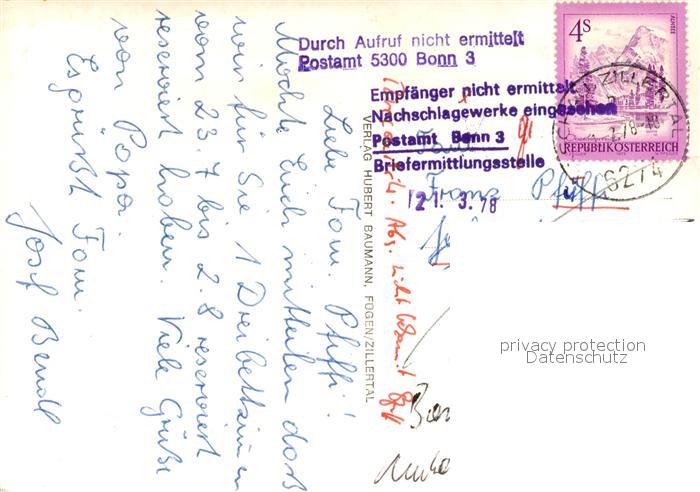 Liebe Fam. Pfiffi!
Möchte Euch mitteilen daß
wir für Sie 1 Dreibettzimmer
vom 23.7 bis 2.8 reserviert
reserviert haben. Viele Grüße
von Papa.
Es grüßt Fam.
Josef Bendl
VERLAG HUBERT BAUMANN, FÜGEN/ZILLERTAL
Durch Aufruf nicht ermittelt
Postamt 5300 Bonn 3
Empfänger nicht ermittelt
Nachschlagewerke eingesehen
Postamt Bonn 3
Briefermittlungsstelle
21. 3. 78
Franz Pfiffi
Abs. nicht bekannt
4S
ALMSEE
REPUBLIK ÖSTERREICH
ZILLERTAL
6274
privacy protection
Datenschutz